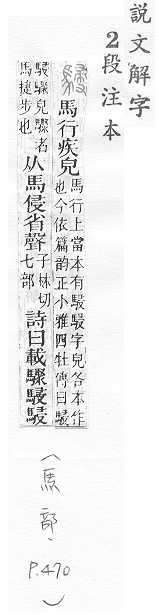 說文解字
2段注本
駸
馬行疾皃
馬行上當本有駸駸字皃各本作
也今依篇韵正小雅四牡傳曰駸
駸驟皃驟者
馬捷步也
从馬侵省聲
子林切
七部
詩曰載驟駸駸
(馬部, P.470)